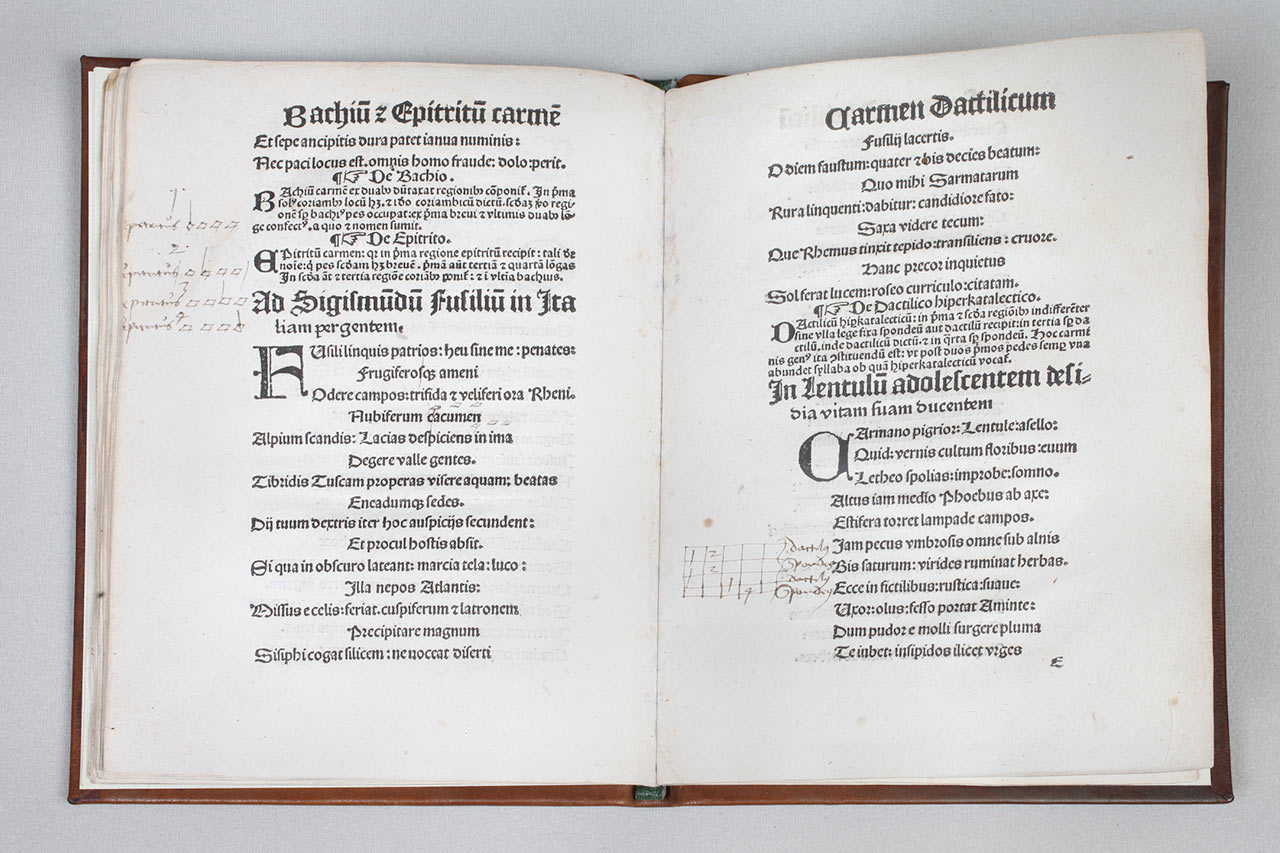 Bachiū ⁊ Epitritū carmē
Et sepe ancipitis dura patet ianua numinis:
Nec paci locus est. omnis homo fraude: dolo: perit.
¶☞ De Bachio.
BAchiū carmē ex duabꝰ dūtaxat regionibꝰ cōponit̃. In p̃ma
solꝰ coriambꝰ locū hȝ. ⁊ ido coriambicū dictū. scd̃aȝ ꝟo regi-
onē sp̱ bachiꝰ pes occupat: ex p̃ma brevi ⁊ vltimis duabꝰ lō-
ge confectꝰ. a quo ⁊ nomen sumit.
¶☞ De Epitrito.
EPitritū carmen: qr in p̃ma regione epitritū recipit: tali de
noīe: q̃ pes scd̃am hȝ brevē. p̃mā aūt tertiā ⁊ quartā lōgas
In scd̃a āt ⁊ tertia regiōe coriābꝰ ponit̃: ⁊ ī vltīa bachius.
1
epitritus
2
epitritus
3
epitritus
4
epitritus
Ad Sigismūdū Fusiliū in Ita
liam pergentem.
FUsili linquis patrios: heu sine me: penates:
Frugiferosqȝ ameni
Odere campos: trifida ⁊ veliferi ora Rheni.
Nubiferum cacumen
Alpium scandis: Lacias despiciens in ima
Degere valle gentes.
Tibridis Tuscam properas visere aquam: beatas
Eneadumqȝ sedes.
Dij tuum dextris iter hoc auspicijs secundent:
Et procul hostis absit.
Si qua in obscuro lateant: marcia tela: luco:
Illa nepos Atlantis:
Missus e celis: feriat. cuspiferum ⁊ latronem
Precipitare magnum
Sisiphi cogat silicem: ne voceat diserti
Carmen Dactilicum
Fusilij lacertis.
O diem faustum: quater ⁊ bis decies beatum:
Quo mihi Sarmatarum
Rura linquenti: dabitur: candidiore fato:
Saxa videre tecum:
Que Rhemus tinxit tepido: transiliens: cruore.
Hanc precor inquietus
Sol ferat lucem: roseo curriculo: citatam.
¶☞ De Dactilico hiperkatalectico.
DActilicū hip̱katalecticū: in p̃ma ⁊ scd̃a regiōibꝰ indifferēter
sine vlla lege fixa spondeū aut dactilū recipit: in tertia sp̱ da
ctilū, inde dactilicū dictū: ⁊ in q̃rta sp̱ spondeū. Hoc carmē
nis genꝰ ita ꝯstituendū est: vt post duos p̃mos pedes semp̱ vna
abundet syllaba ob quā hiperkatalecticū vocat̃.
In Lentulū adolescentem desi-
dia vitam suam ducentem
CArmano pigrior: Lentule: asello:
Quid: vernis cultum floribus: euum
Letheo spolias: improbe: somno.
Altus iam medio Phoebus ab axe:
Estifera torret lampade campos.
Jam pecus vmbrosis omne sub alnis
Bis saturum: virides ruminat herbas.
Ecce in fictilibus: rustica: suaue:
Uxor: olus: fesso portat Aminte:
Dum pudor e molli surgere pluma
Te iubet: insipidos ilicet vrges
1 2 dactilꝰ
1 2 Spondeꝰ
1 dactilꝰ
4 Spondeꝰ
E